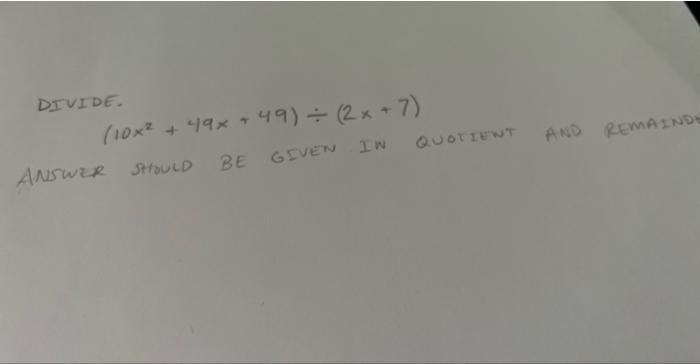 DIVIDE.
(10x² + 49x + 49) ÷ (2x + 7)
ANSWER SHOULD BE GIVEN IN QUOTIENT AND REMAINDE